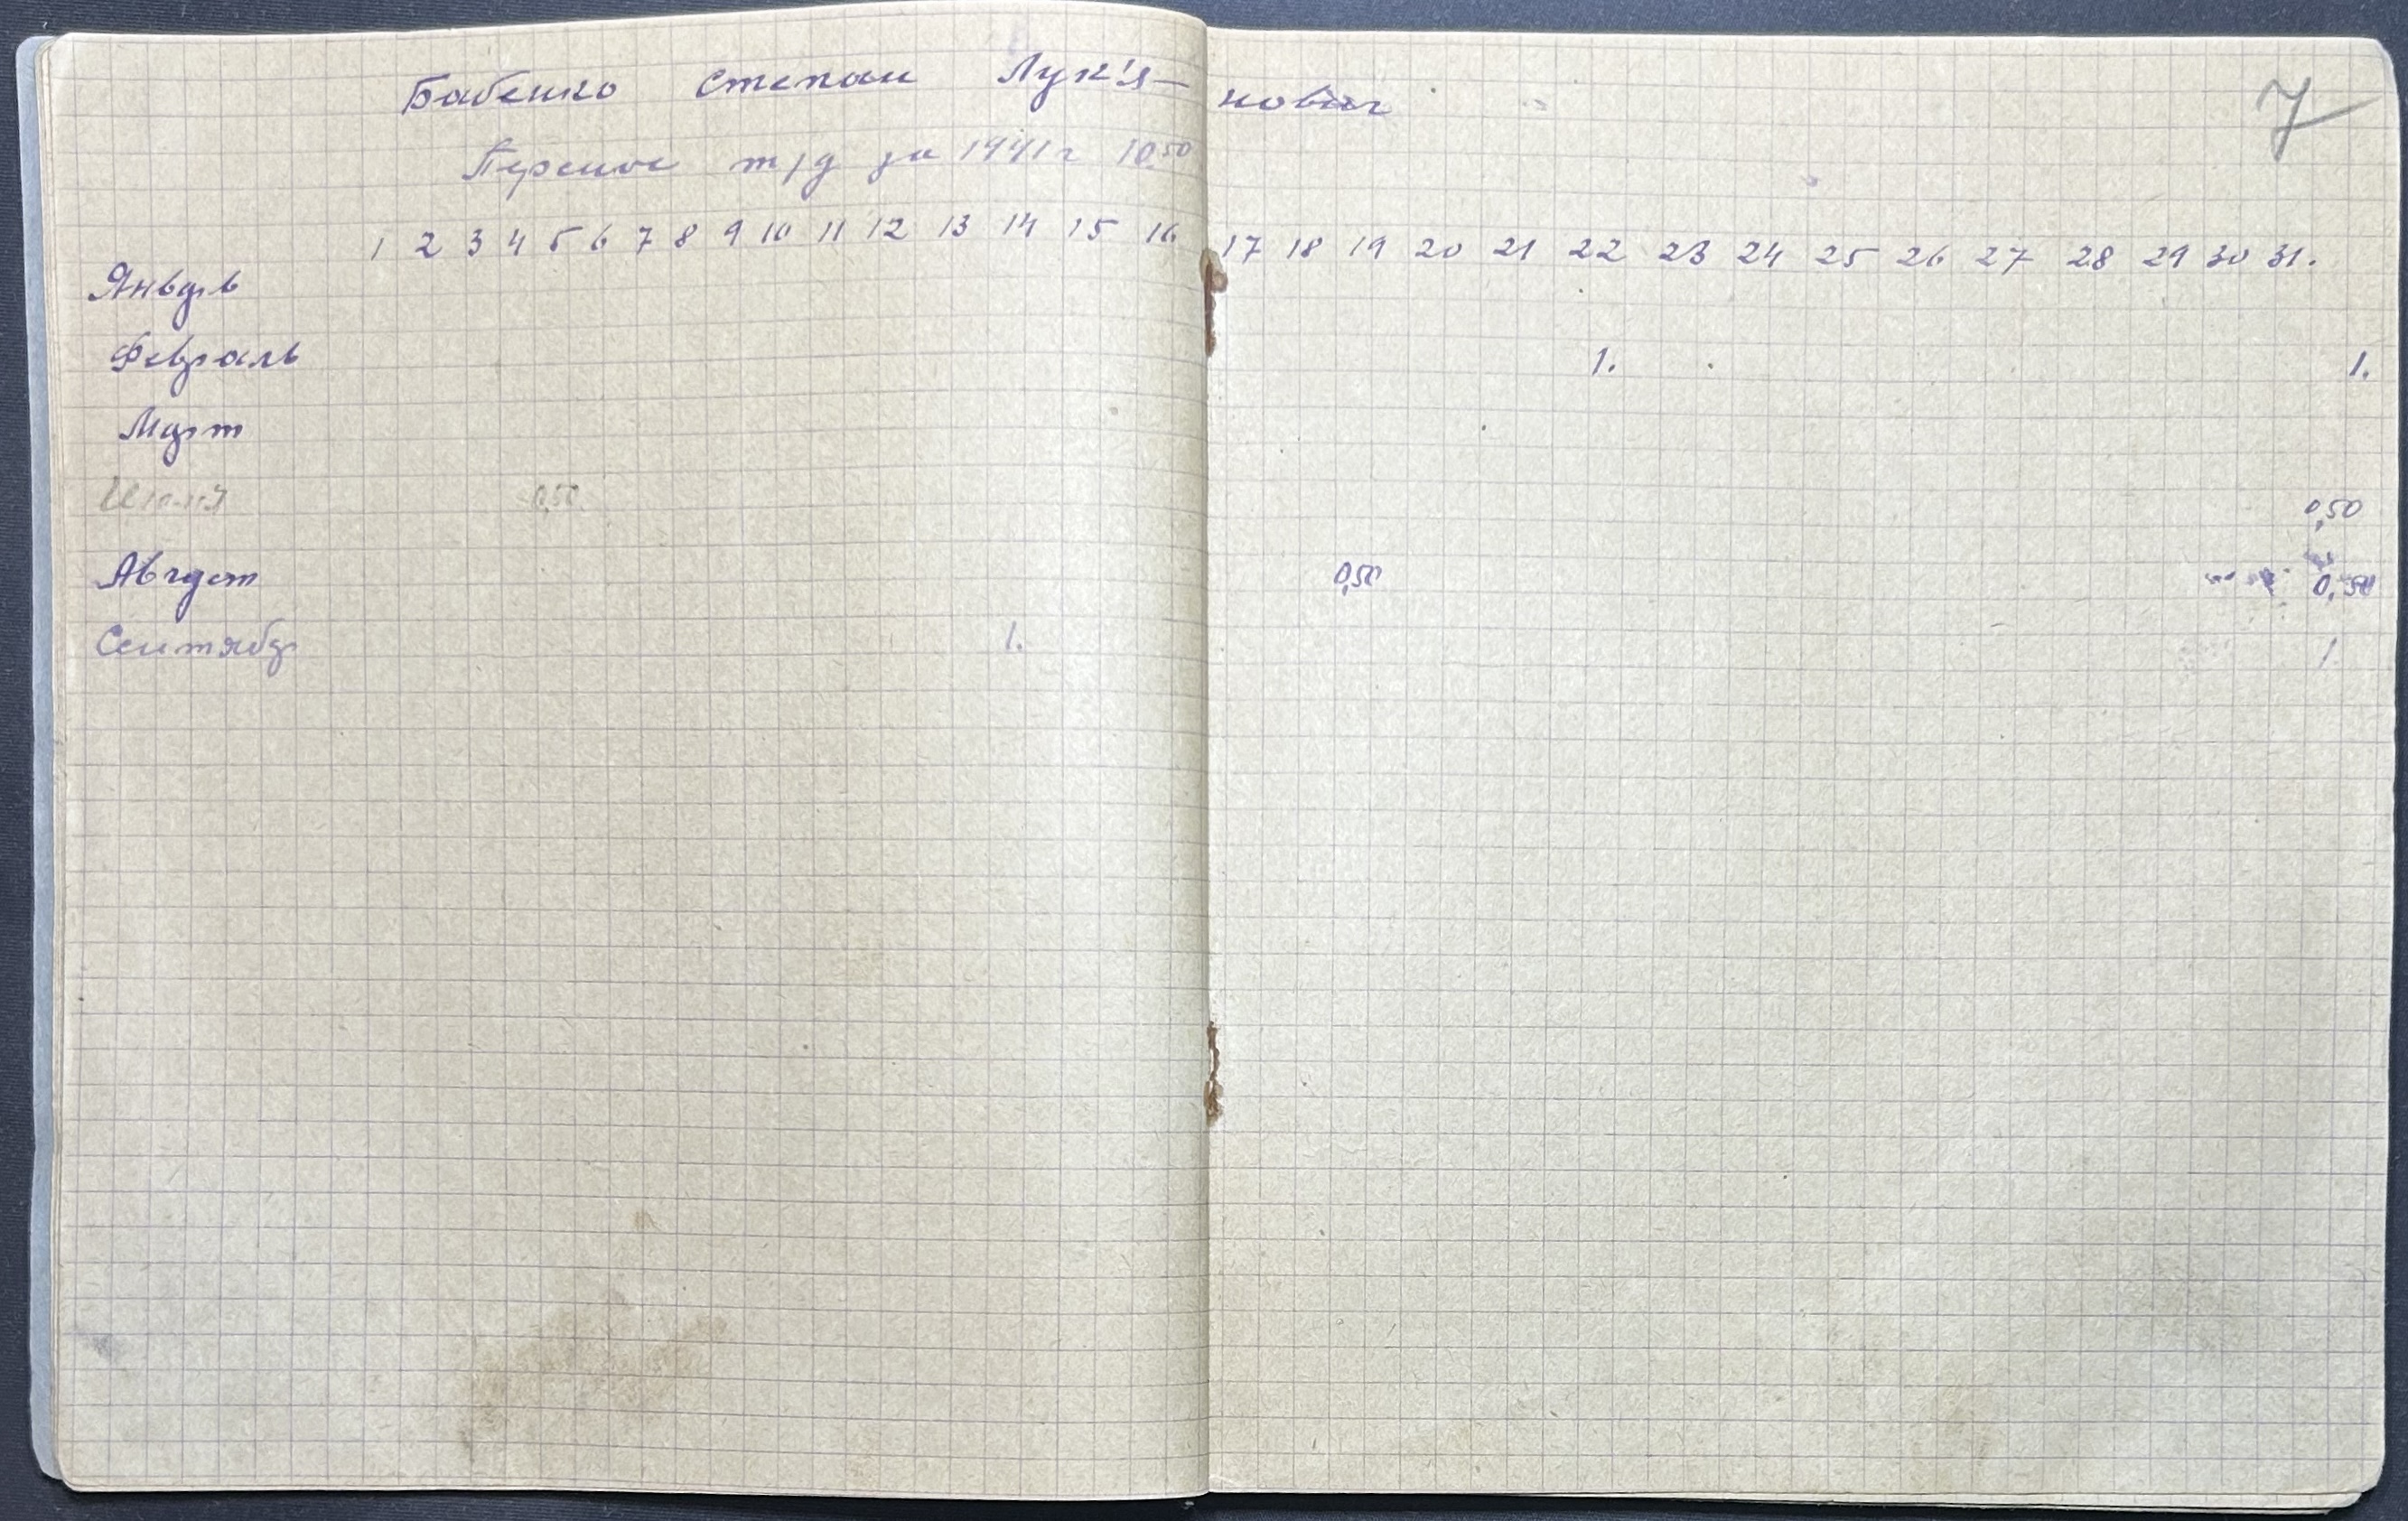 7
Бабенко Степан Лук'я-нович
Перенос т/д за 1941 г 10.50
1 2 3 4 5 6 7 8 9 10 11 12 13 14 15 16 17 18 19 20 21 22 23 24 25 26 27 28 29 30 31.
Январь
Февраль 1. 1.
Март
0,50 0,50
Август 0,50 0,50
Сентябр 1. 1